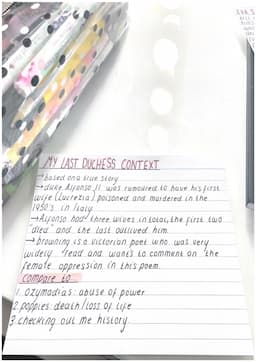 MY LAST DUCHESS CONTEXT
→based on a true story
→duke Alfonso II was rumoured to have his first
wife (Lucrezia) poisoned and murdered in the
1950's in Italy
→Alfonso had three wives in total, the first two
"died" and the last outlived him.
→browning is a victorian poet who was very
widely read and wants to comment on the
female oppression in this poem.
compare to
1. ozymadias: abuse of power
2. poppies: death/loss of life
3. checking out me history